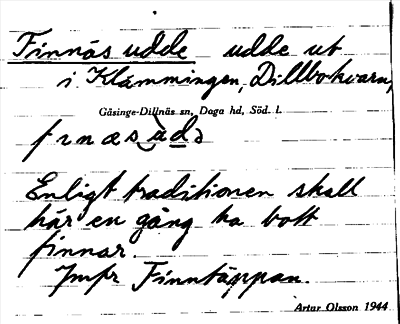 Finnäs udde udde ut
i Klämmingen, Dillbokvarn,
Gåsinge-Dillnäs sn, Daga hd, Söd. l.
Enligt traditionen skall
här en gång ha bott
finnar.
Jmfr Finntäppan.
Artur Olsson 1944